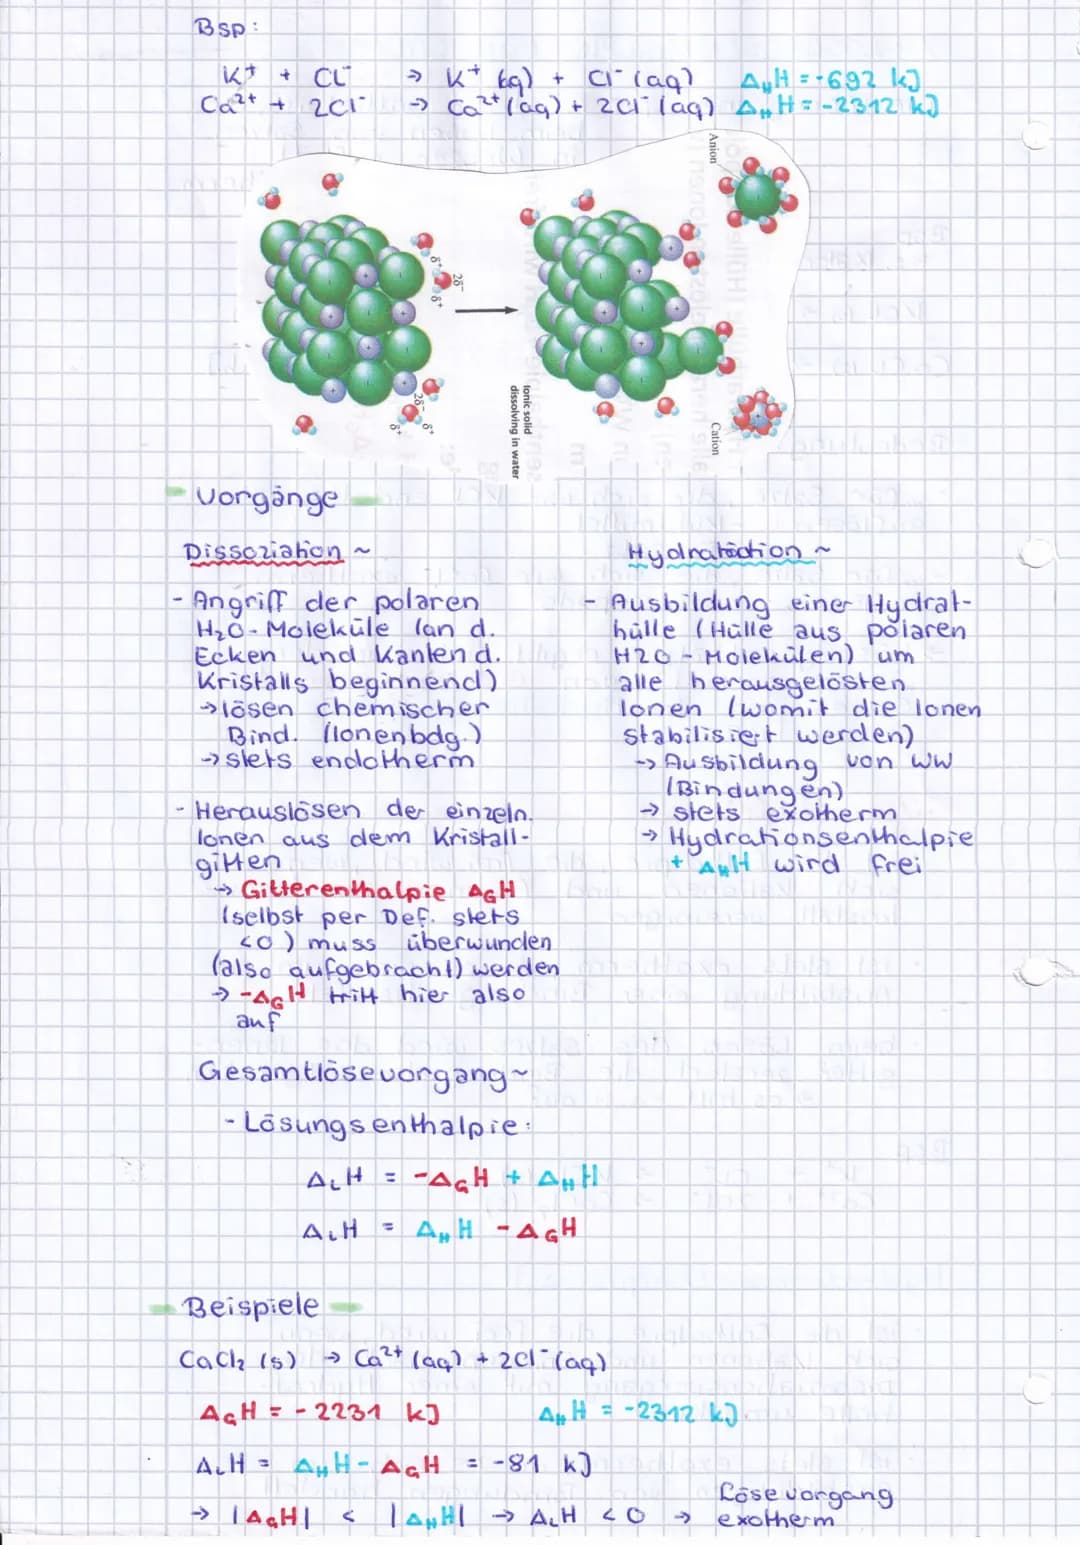 Bsp:
K⁺ + Cl⁻ → K⁺ (aq) + Cl⁻ (aq) ΔHH = -692 kJ
Ca²⁺ + 2Cl⁻ → Ca²⁺ (aq) + 2Cl⁻ (aq) ΔHH = -2312 kJ
Anion
δ⁺
2δ⁻
δ⁺
2δ⁻
δ⁺
δ⁺
Ionic solid
dissolving in water
Cation
Vorgänge
Dissoziation ~
- Angriff der polaren
H₂O-Moleküle (an d.
Ecken und Kanten d.
Kristalls beginnend)
→ lösen chemischer
Bind. (Ionenbdg.)
→ stets endotherm
- Herauslösen der einzeln.
Ionen aus dem Kristall-
gitten
→ Gitterenthalpie ΔGH
(selbst per Def. stets
<0) muss überwunden
(also aufgebracht) werden
→ -ΔGH tritt hier also
auf
Hydratation ~
- Ausbildung einer Hydrat-
hülle (Hülle aus polaren
H2O - Molekülen) um
alle herausgelösten
Ionen (womit die Ionen
stabilisiert werden)
→ Ausbildung von WW
(Bindungen)
→ stets exotherm
→ Hydrationsenthalpie
+ ΔHH wird frei
Gesamtlösevorgang ~
- Lösungsenthalpie:
ΔLH = -ΔGH + ΔHH
ΔLH = ΔHH - ΔGH
Beispiele
CaCl₂ (s) → Ca²⁺ (aq) + 2Cl⁻ (aq)
ΔGH = - 2231 kJ ΔHH = -2312 kJ
ΔLH = ΔHH - ΔGH = -81 kJ
→ |ΔGH| < |ΔHH| → ΔLH < 0 → Lösevorgang
exotherm